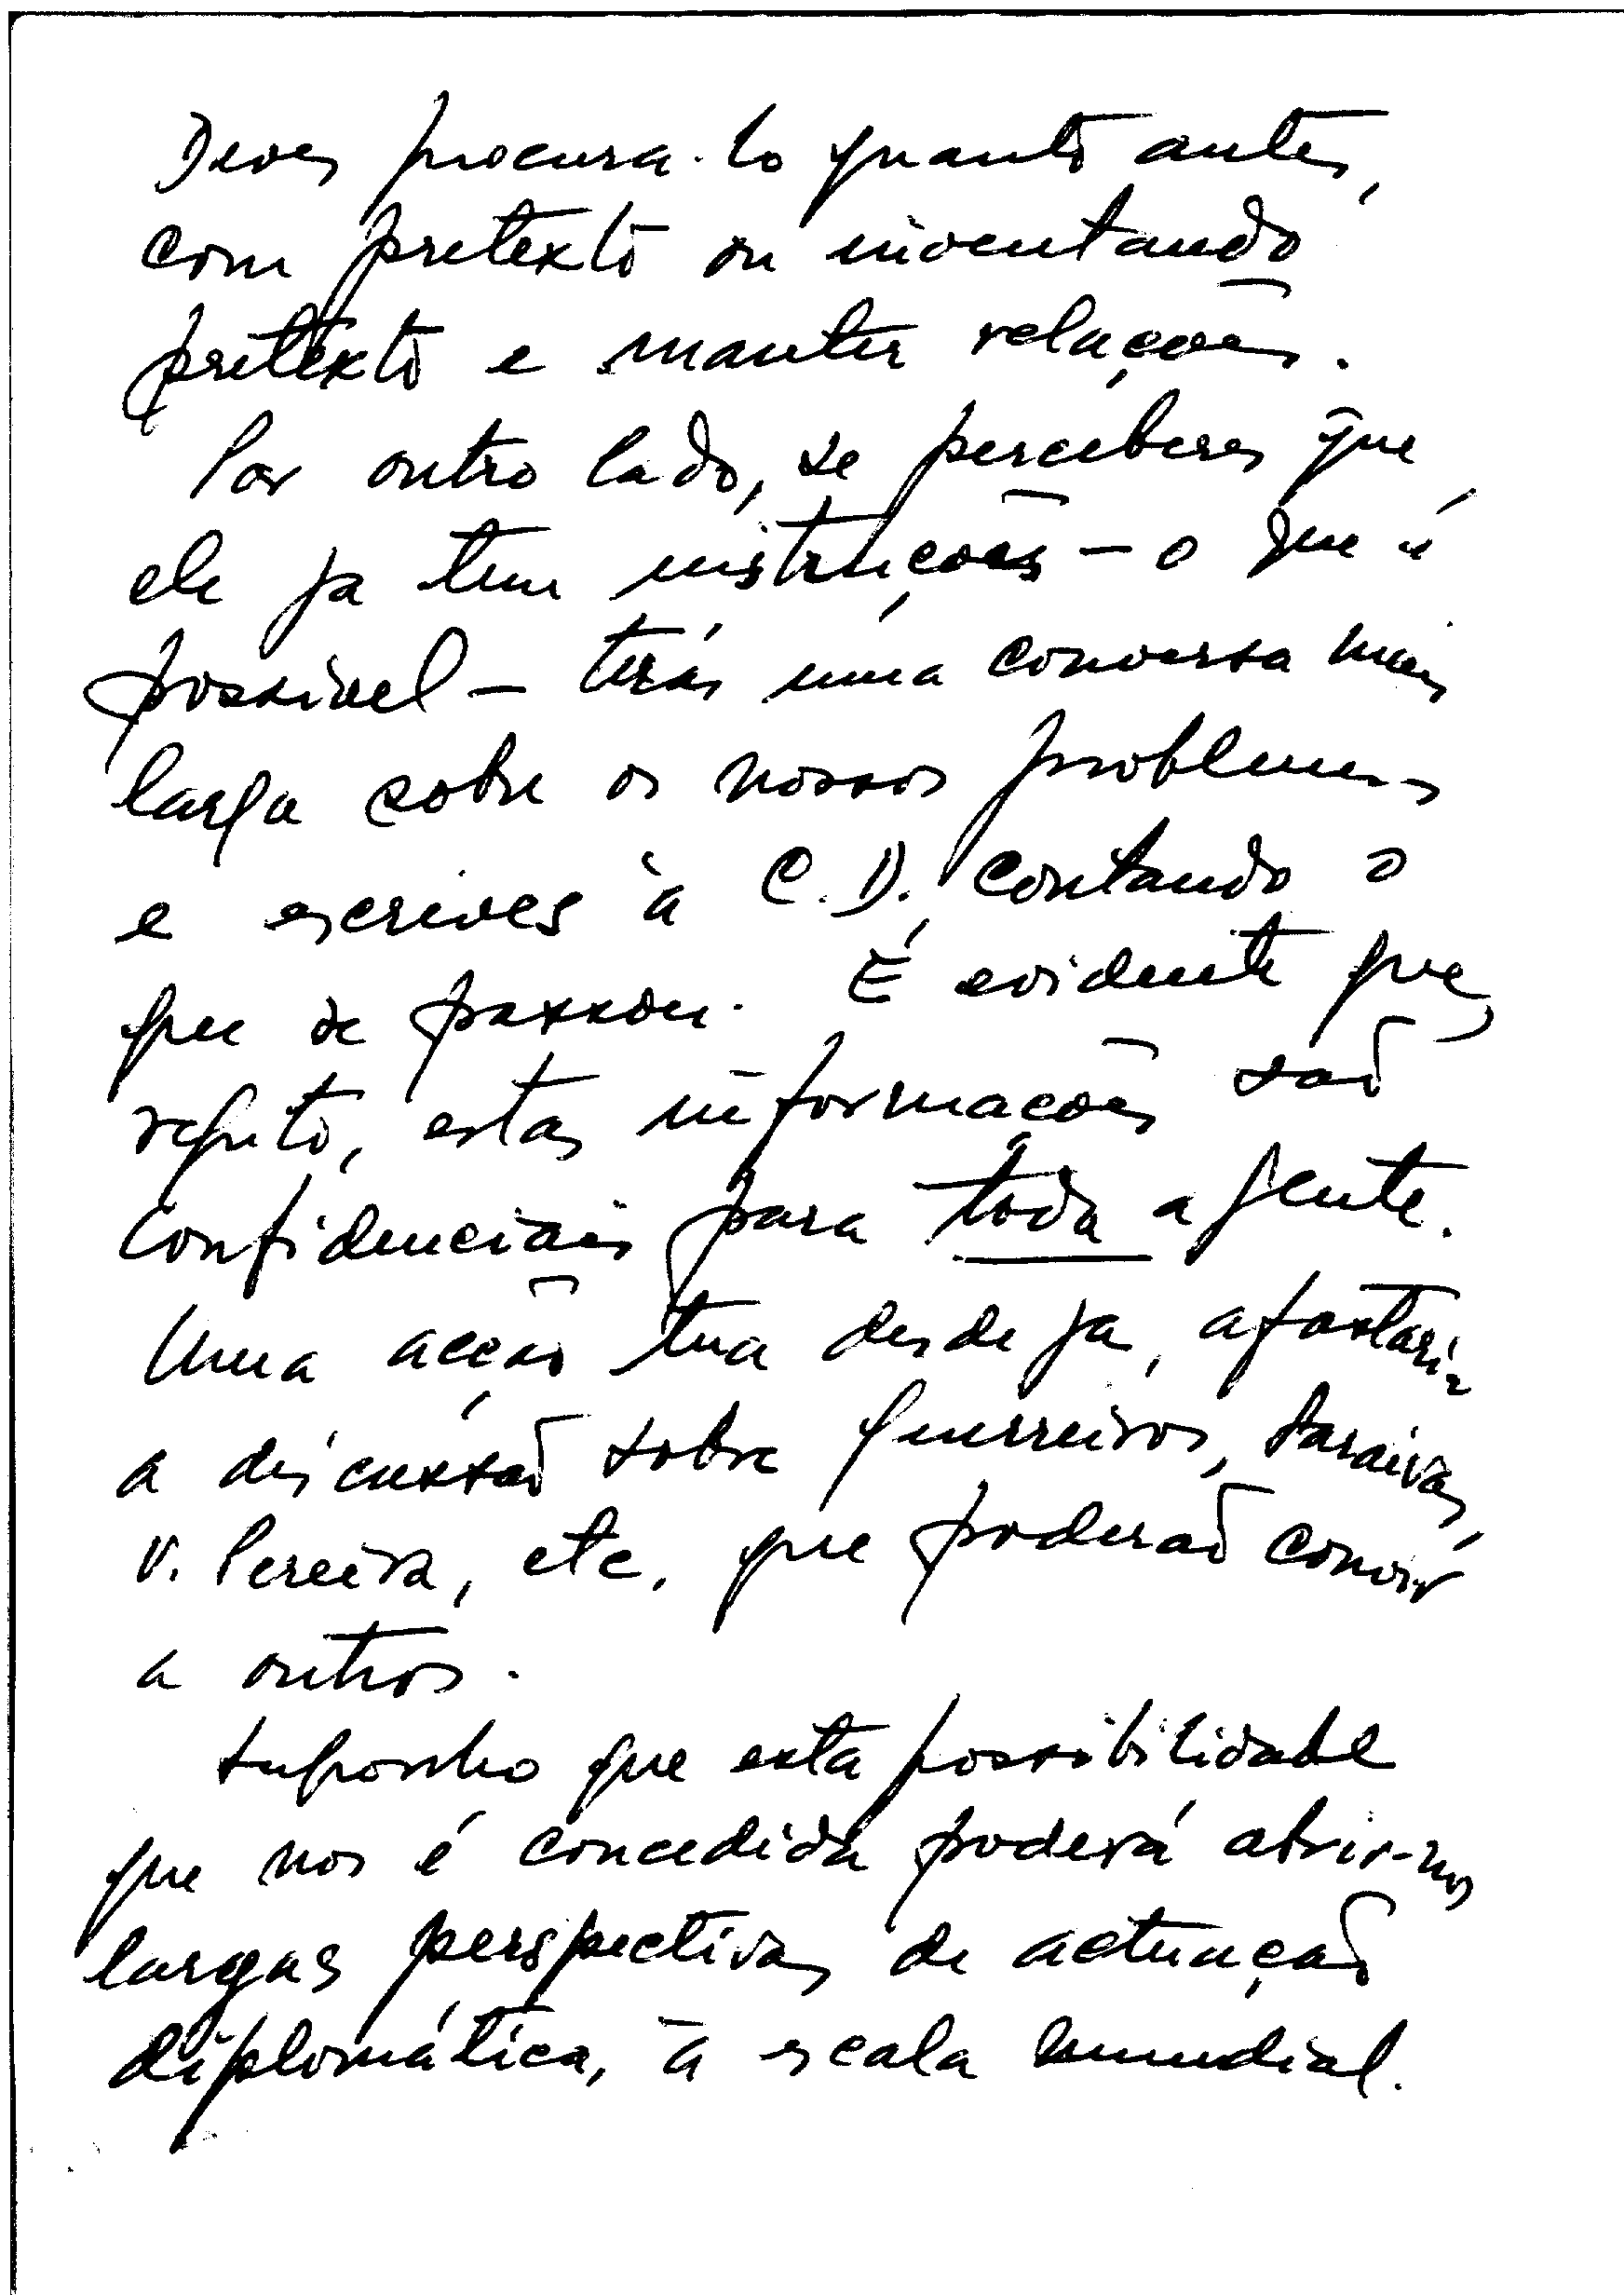 Deves procura-lo quanto antes,
com pretexto ou inventando
pretexto e manter relações.
Por outro lado, se perceberes que
ele ja tem instruções – o que é
possivel – terás uma conversa mais
larga sobre os nossos problemas
e escreves à C.D. contando o
que se passou. É evidente que,
repito, estas informações são
confidenciais para toda a gente.
Uma acção tua desde ja, afastaria
a discussão sobre Guerreiros, Saraivas,
V. Pereira, etc. que poderão convir
a outros.
Suponho que esta possibilidade
que nos é concedida poderá abrir-nos
largas perspectivas de actuação
diplomática, à escala mundial.